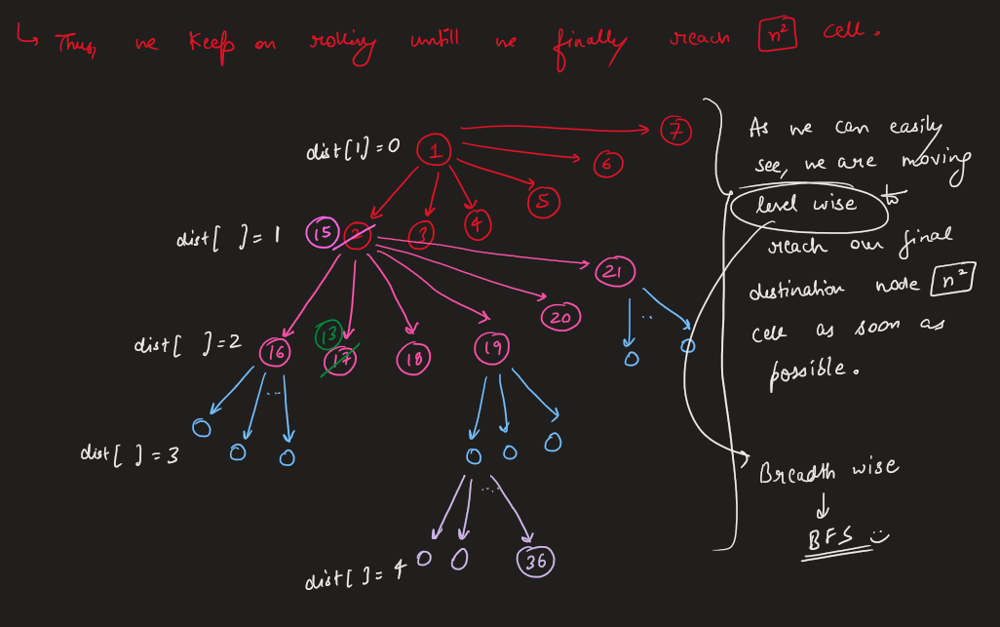 ↳ Thus, we keep on rolling untill we finally reach n² cell.
dist[1]=0
1
7
6
5
4
3
2
15
dist[ ]=1
21
20
19
18
17
13
16
dist[ ]=2
...
..
dist[ ]=3
...
dist[ ]=4
36
As we can easily
see, we are moving
level wise to
reach our final
destination node n²
cell as soon as
possible.
Breadth wise
↓
BFS